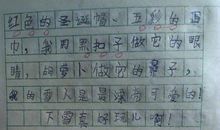 红色的圣诞帽、五彩的围
巾，我用黑扣子做它的眼
睛，胡萝卜做它的鼻子，
我的雪人是最漂可爱的！
下雪真好玩儿啊！